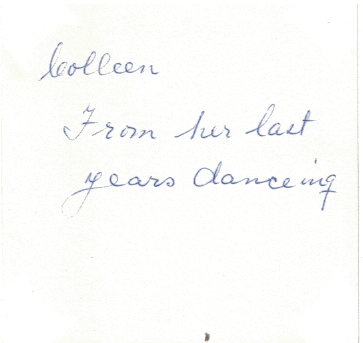 Colleen
From her last
years danceing